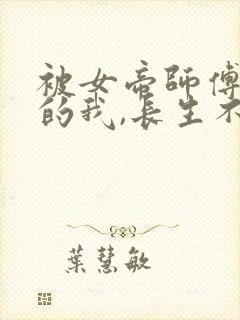 被女帝師傅
的我,長生不
葉慧敏